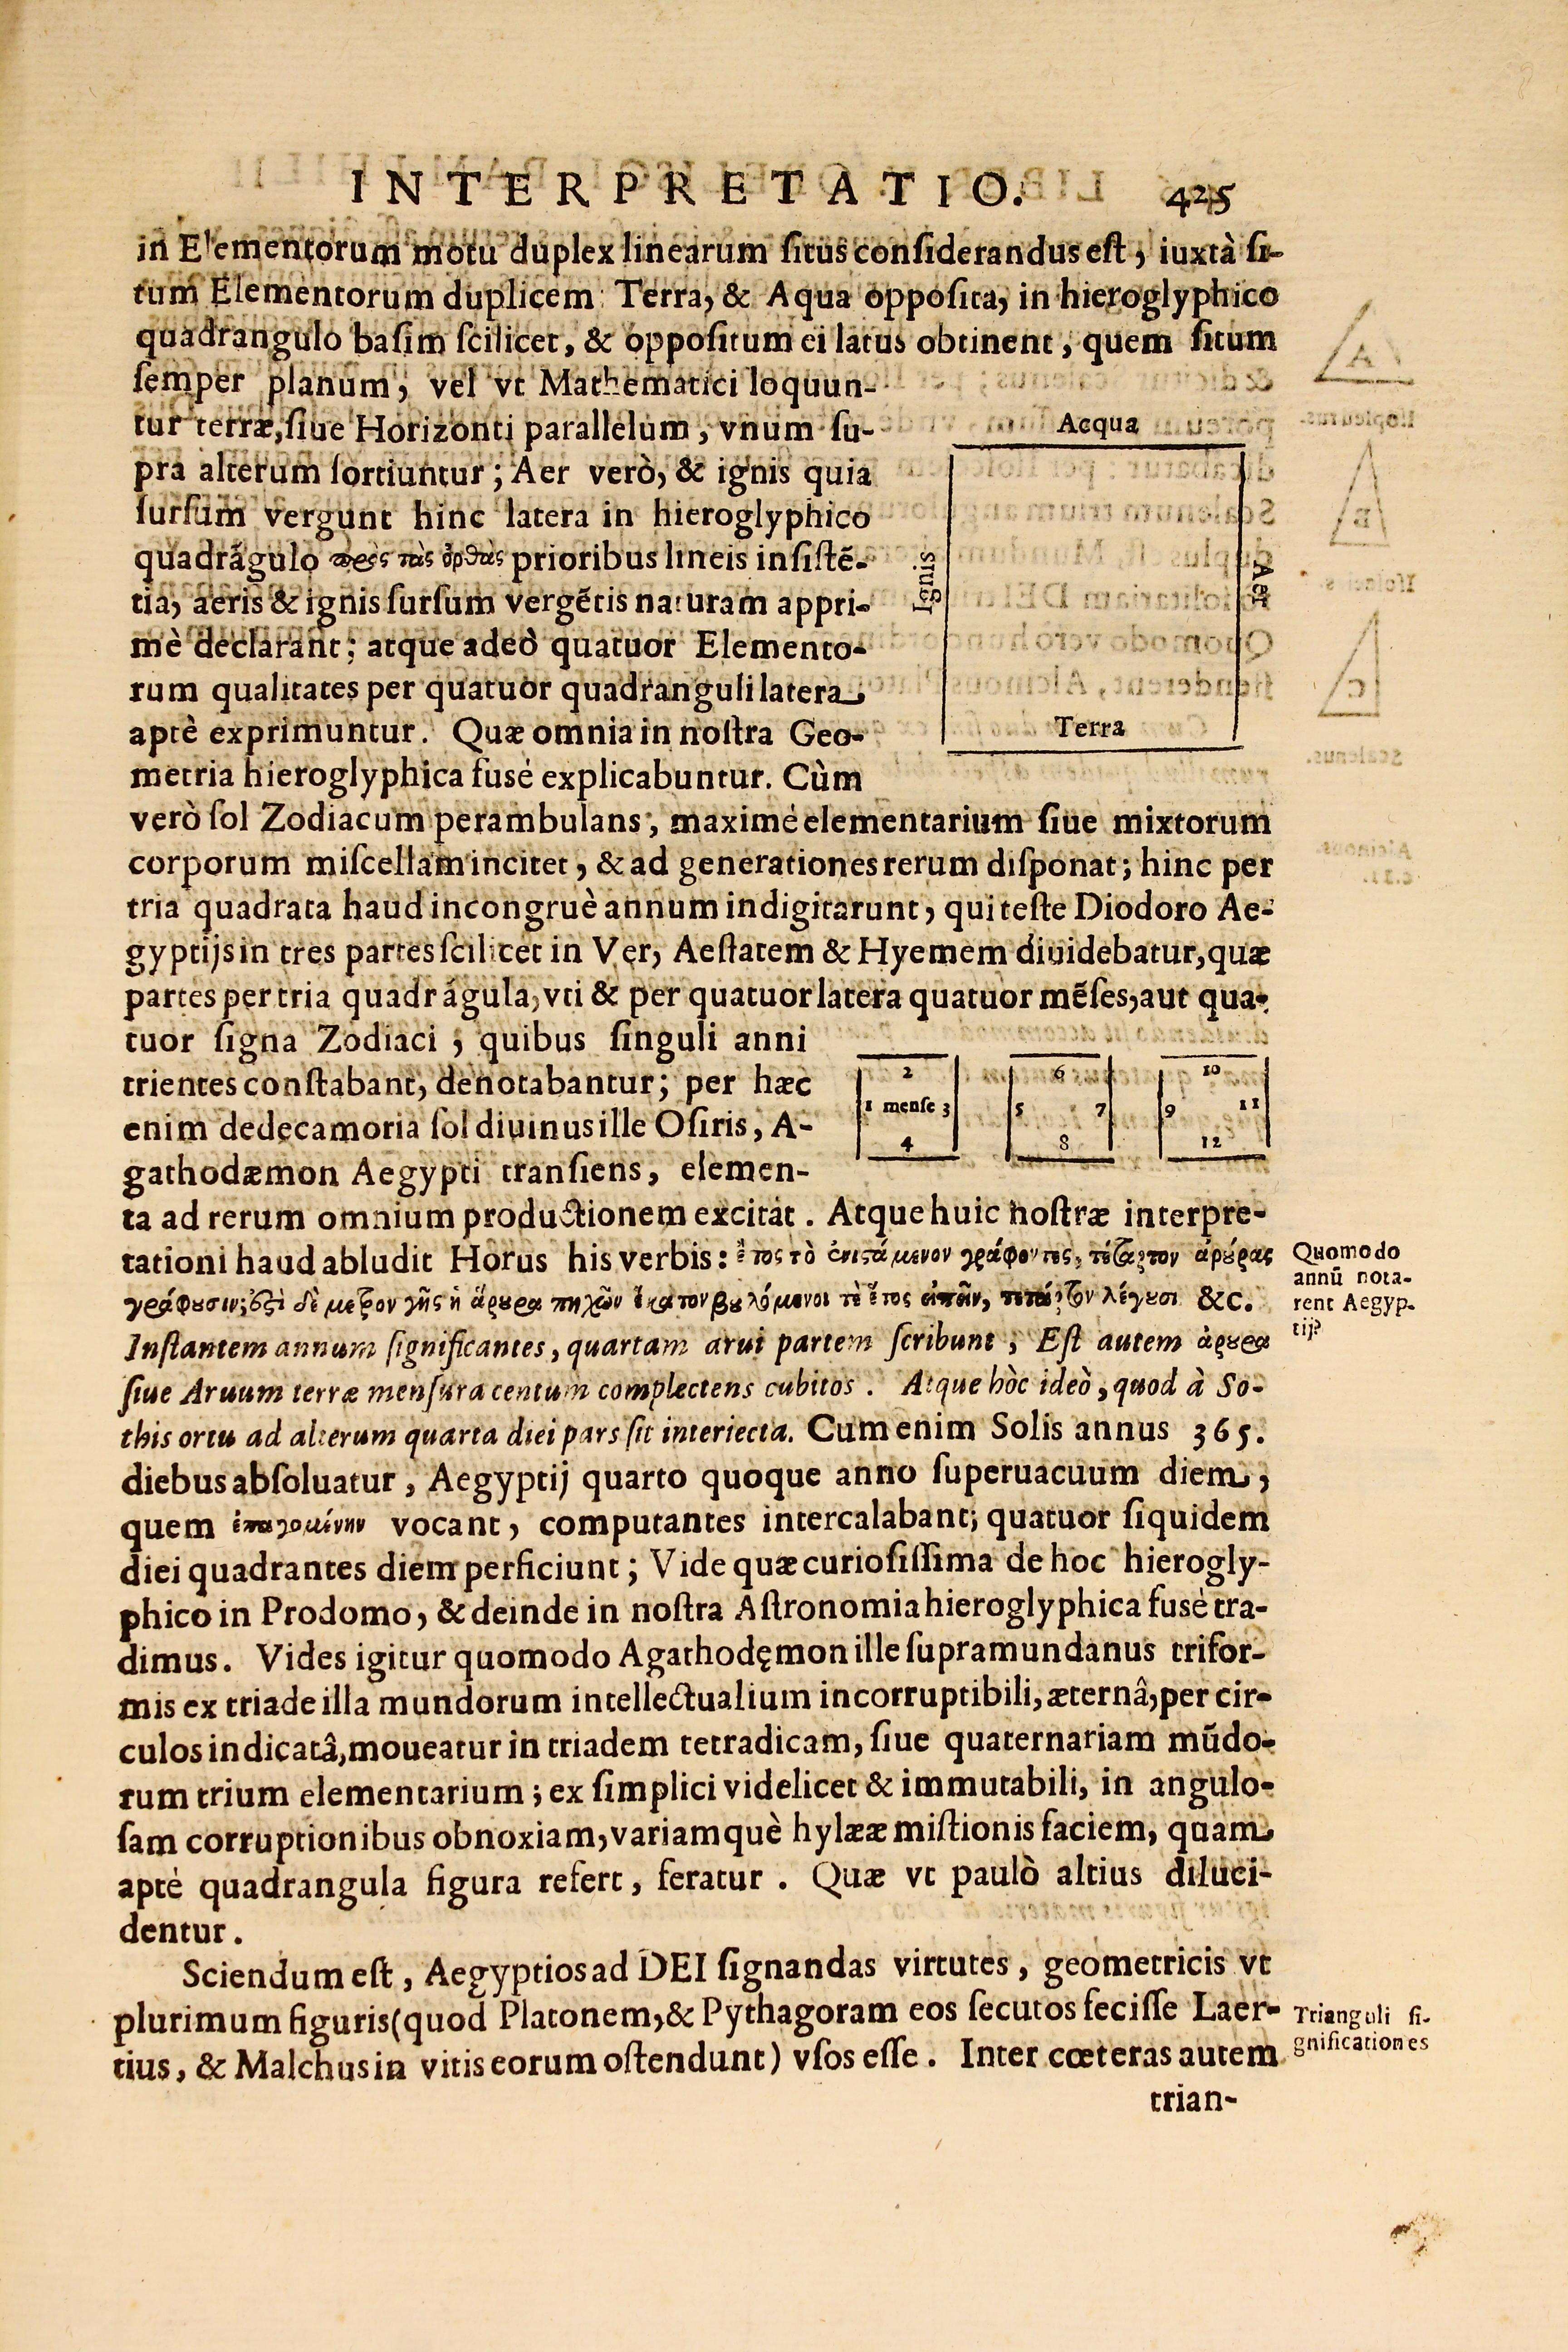 INTERPRETATIO. 425
in Elementorum motu duplex linearum ſitus conſiderandus eſt, iuxtà ſi-
tum Elementorum duplicem Terra, & Aqua oppoſita, in hieroglyphico
quadrangulo baſim ſcilicet, & oppoſitum ei latus obtinent, quem ſitum
ſemper planum, vel vt Mathematici loquun-
tur terræ, ſiue Horizonti parallelum, vnum ſu-
pra alterum ſortiuntur; Aer verò, & ignis quia
ſurſum vergunt hinc latera in hieroglyphico
quadrãgulo πρὸς τὰς ὀρθὰς prioribus lineis inſiſtẽ-
tia, aeris & ignis ſurſum vergẽtis naturam appri-
mè declarant; atque adeò quatuor Elemento-
rum qualitates per quatuor quadranguli latera
aptè exprimuntur. Quæ omnia in noſtra Geo-
metria hieroglyphica fusé explicabuntur. Cùm
Acqua
Ignis
Aer
Terra
verò ſol Zodiacum perambulans, maximé elementarium ſiue mixtorum
corporum miſcellam incitet, & ad generationes rerum diſponat; hinc per
tria quadrata haud incongruè annum indigitarunt, qui teſte Diodoro Ae-
gyptijs in tres partes ſcilicet in Ver, Aeſtatem & Hyemem diuidebatur, quæ
partes per tria quadrãgula, vti & per quatuor latera quatuor mẽſes, aut qua-
tuor ſigna Zodiaci, quibus ſinguli anni
trientes conſtabant, denotabantur; per hæc
enim dedecamoria ſol diuinus ille Oſiris, A-
gathodæmon Aegypti tranſiens, elemen-
2 6 10
1 menſe 3 5 7 9 11
4 8 12
ta ad rerum omnium productionem excitat. Atque huic noſtræ interpre-
tationi haud abludit Horus his verbis: ἔτος τὸ ἐνιστάμενον γράφοντες, τέταρτον ἀρούρας
γράφουσιν; ἔστι δὲ μέτρον γῆς ἡ ἄρουρα πηχῶν ἑκατον βουλόμενοι τὲ ἔτος εἰπεῖν, τεταρτον λέγουσι &c.
Inſtantem annum ſignificantes, quartam arui partem ſcribunt, Eſt autem ἄρουρα
ſiue Aruum terræ menſura centum complectens cubitos. Atque hòc ideò, quod à So-
this ortu ad alterum quarta diei pars ſit interiecta. Cum enim Solis annus 365.
diebus abſoluatur, Aegyptij quarto quoque anno ſuperuacuum diem,
quem ἐπαγομένην vocant, computantes intercalabant; quatuor ſiquidem
diei quadrantes diem perficiunt; Vide quæ curioſiſſima de hoc hierogly-
phico in Prodomo, & deinde in noſtra Aſtronomia hieroglyphica fusè tra-
dimus. Vides igitur quomodo Agathodęmon ille ſupramundanus trifor-
mis ex triade illa mundorum intellectualium incorruptibili, æternâ, per cir-
culos indicatâ, moueatur in triadem tetradicam, ſiue quaternariam mũdo-
rum trium elementarium; ex ſimplici videlicet & immutabili, in angulo-
ſam corruptionibus obnoxiam, variamquè hylææ miſtionis faciem, quam
apté quadrangula figura refert, feratur. Quæ vt paulò altius diluci-
dentur.
Sciendum eſt, Aegyptios ad DEI ſignandas virtutes, geometricis vt
plurimum figuris (quod Platonem, & Pythagoram eos ſecutos feciſſe Laer-
tius, & Malchus in vitis eorum oſtendunt) vſos eſſe. Inter cœteras autem
trian-
Quomodo
annũ nota-
rent Aegyp-
tij?
Trianguli ſi-
gnificationes